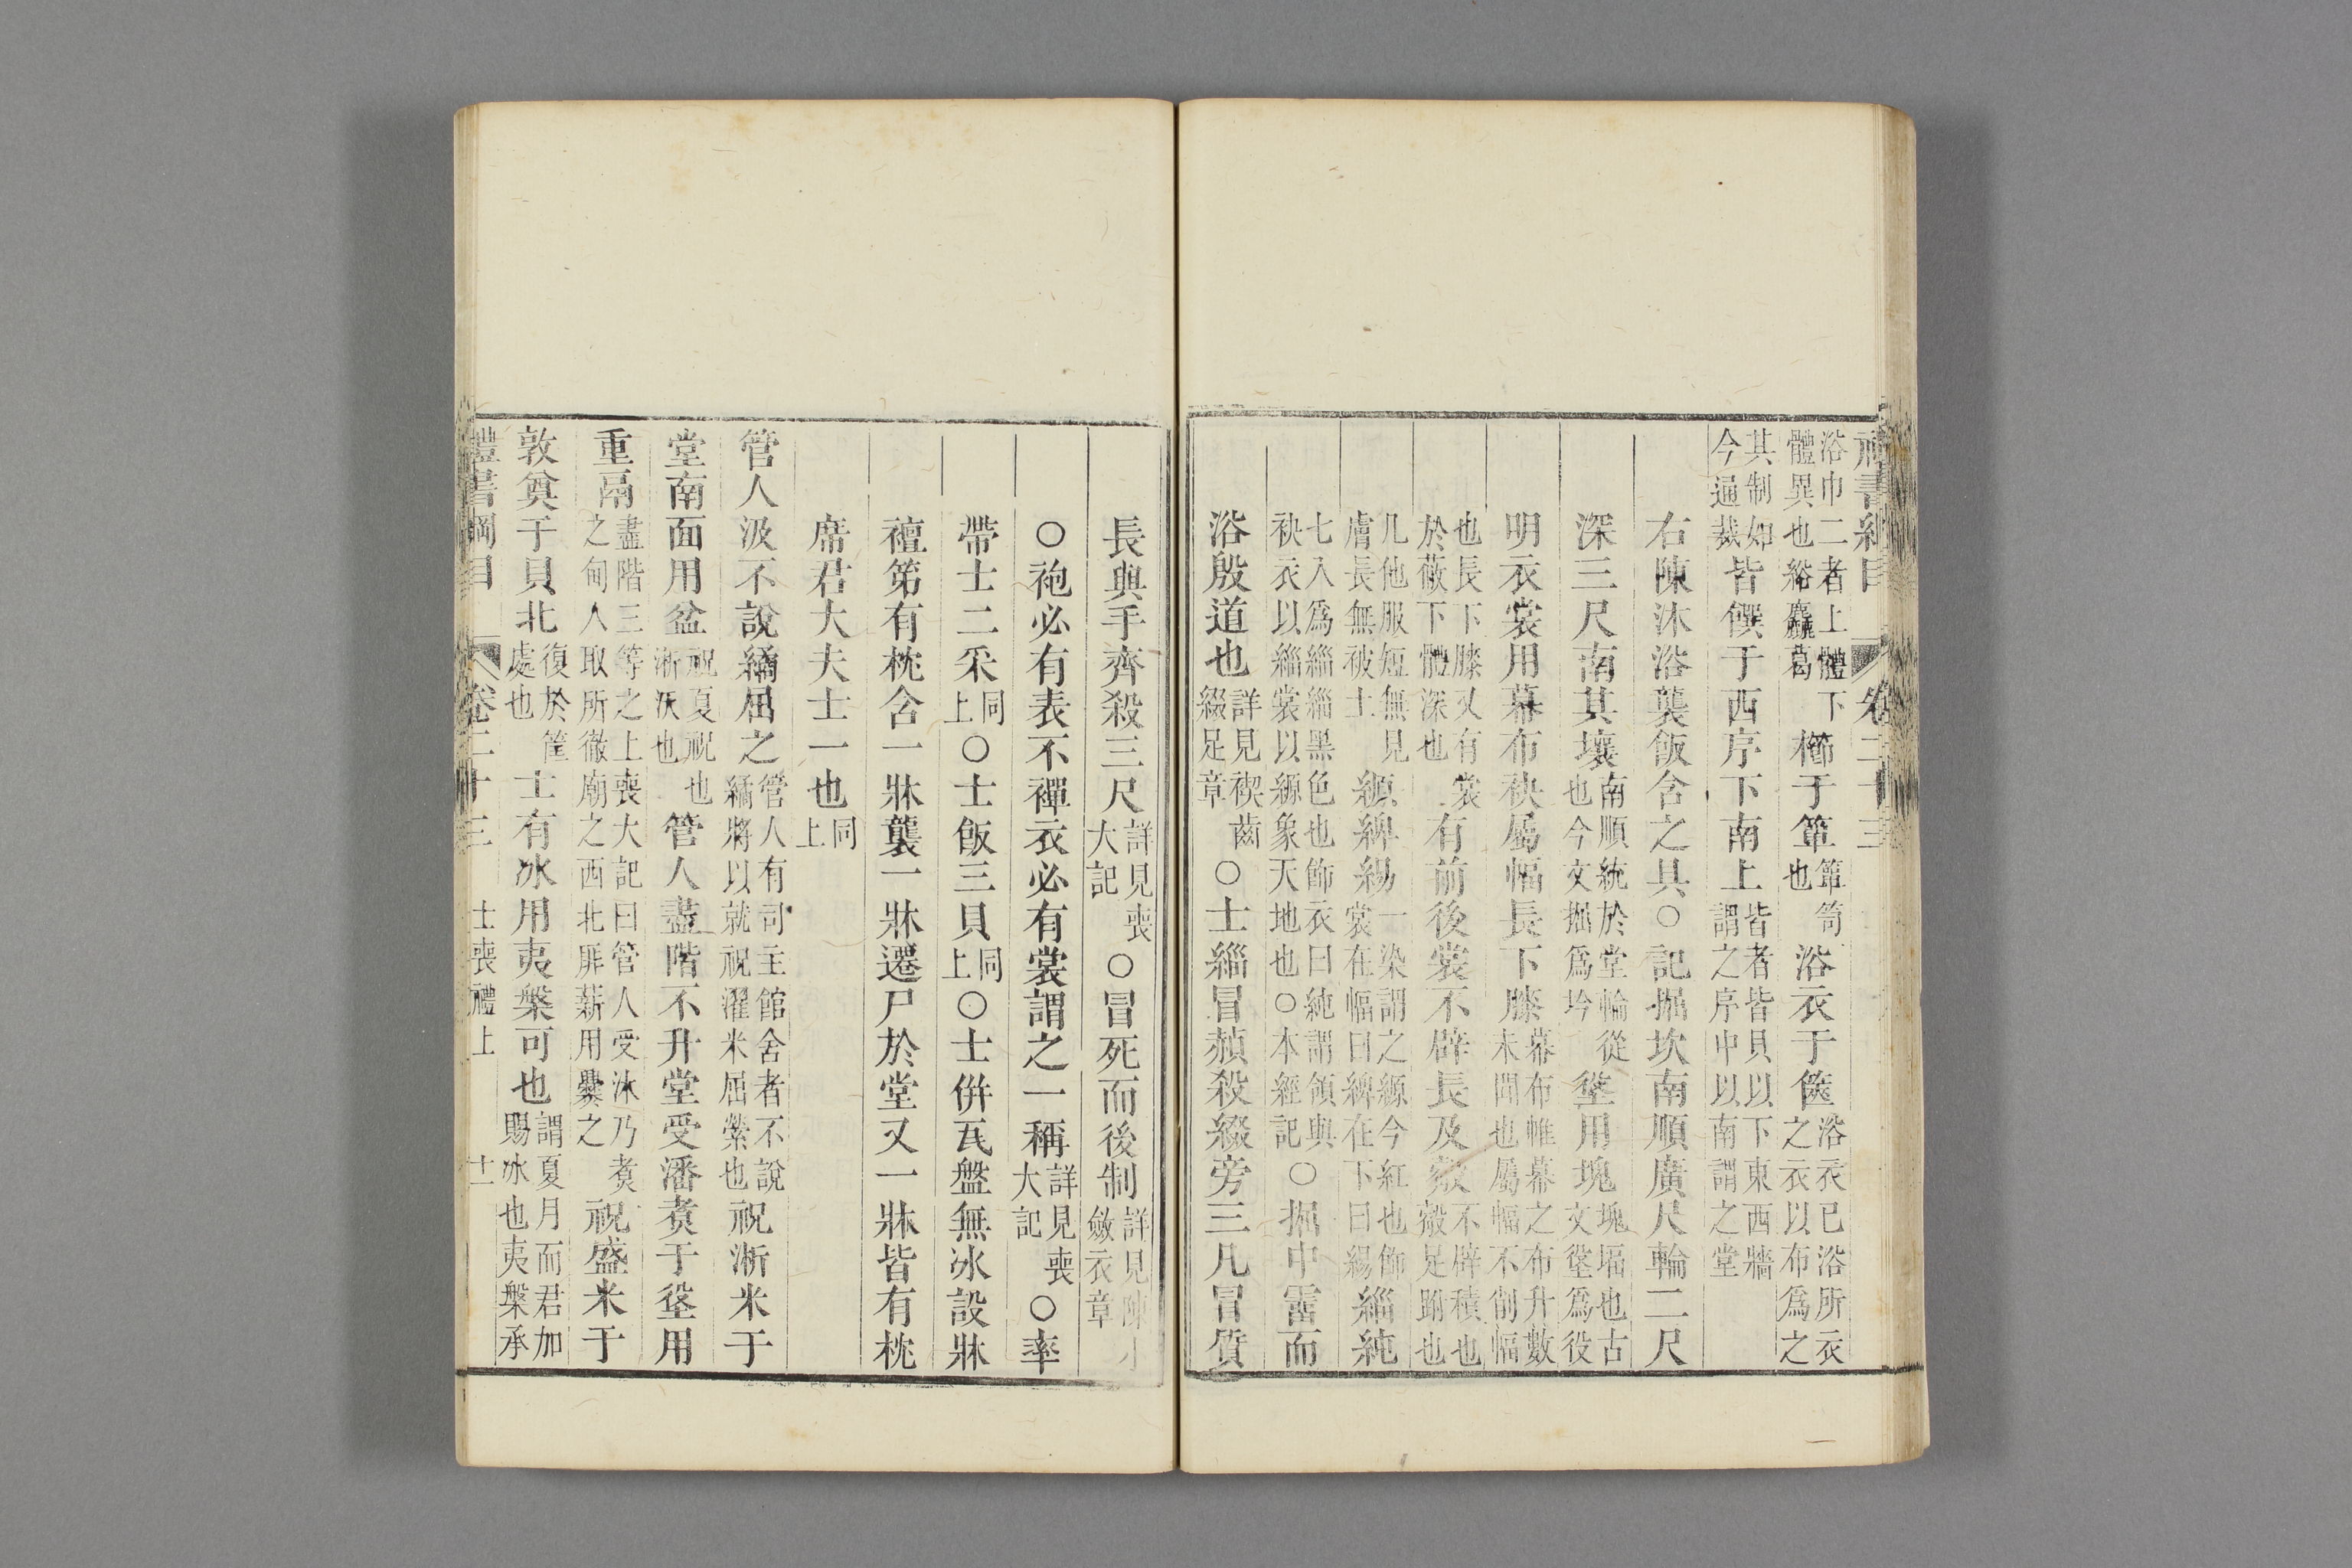 禮書綱目 卷二十三
浴巾二者上體下體異也綌麤葛櫛于簞簞笥也浴衣于篋浴衣已浴所衣之衣以布爲之
其制如今通裁皆饌于西序下南上皆者皆貝以下東西牆謂之序中以南謂之堂
右陳沐浴襲飯含之具○記掘坎南順廣尺輪二尺
深三尺南其壤南順統於堂輪從也今文掘爲坅垼用塊塊堛也古文垼爲役
明衣裳用幕布袂屬幅長下膝幕布帷幕之布升數未聞也屬幅不削幅
也長下膝又有裳於蔽下體深也有前後裳不辟長及觳不辟積也觳足跗也
凡他服短無見膚長無被土縓綼緆一染謂之縓今紅也飾裳在幅曰綼在下曰緆緇純
七入爲緇緇黑色也飾衣曰純謂領與袂衣以緇裳以縓象天地也○本經記○掘中霤而
浴殷道也詳見楔齒綴足章○士緇冒赬殺綴旁三凡冒質
長與手齊殺三尺詳見喪大記○冒死而後制詳見陳小斂衣章
○袍必有表不襌衣必有裳謂之一稱詳見喪大記○率
帶士二采同上○士飯三貝同上○士倂瓦盤無冰設牀
襢笫有枕含一牀襲一牀遷尸於堂又一牀皆有枕
席君大夫士一也同上
管人汲不說繘屈之管人有司主館舍者不說繘將以就祝濯米屈縈也祝淅米于
堂南面用盆祝夏祝也淅汰也管人盡階不升堂受潘煑于垼用
重鬲盡階三等之上喪大記曰管人受沐乃煑之甸人取所徹廟之西北厞薪用爨之祝盛米于
敦奠于貝北復於筐處也士有冰用夷槃可也謂夏月而君加賜冰也夷槃承
禮書綱目 卷二十三 士喪禮上 十一